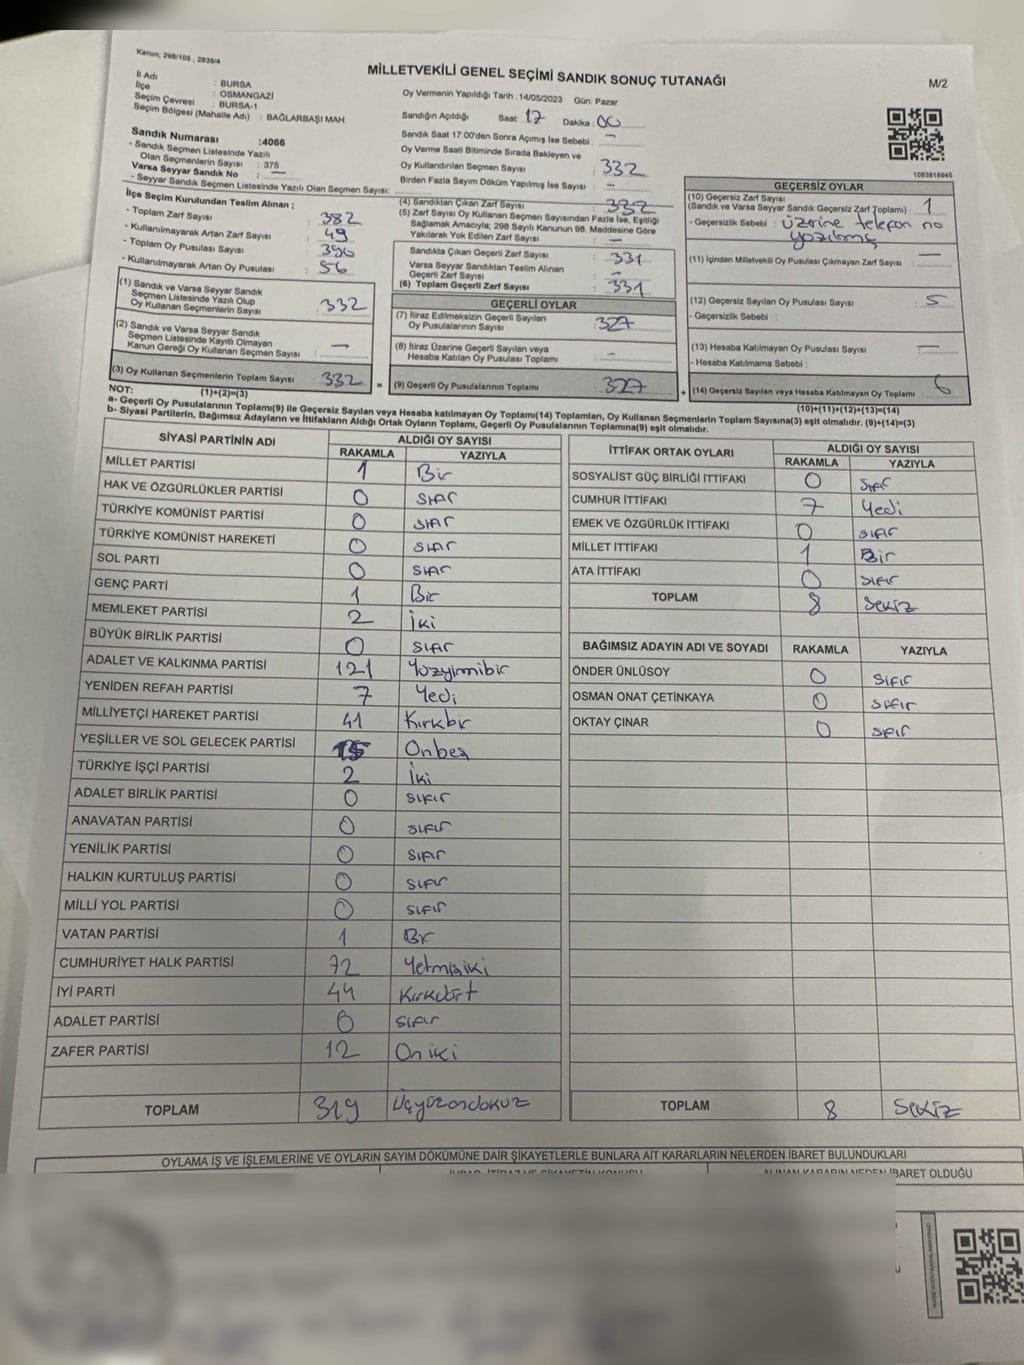 Kanun; 298/105 , 2839/4
MİLLETVEKİLİ GENEL SEÇİMİ SANDIK SONUÇ TUTANAĞI
M/2
İl Adı : BURSA
İlçe : OSMANGAZİ
Seçim Çevresi : BURSA-1
Seçim Bölgesi (Mahalle Adı) : BAĞLARBAŞI MAH
Oy Vermenin Yapıldığı Tarih :14/05/2023 Gün: Pazar
Sandığın Açıldığı Saat: 17 Dakika: 00
Sandık Saat 17:00'den Sonra Açımış İse Sebebi : -
Oy Verme Saati Bitiminde Sırada Bekleyen ve
Oy Kullandırılan Seçmen Sayısı : 332
Birden Fazla Sayım Döküm Yapılmış İse Sayısı : -
Sandık Numarası :4066
- Sandık Seçmen Listesinde Yazılı
Olan Seçmenlerin Sayısı : 375
Varsa Seyyar Sandık No : -
- Seyyar Sandık Seçmen Listesinde Yazılı Olan Seçmen Sayısı:
1083818045
İlçe Seçim Kurulundan Teslim Alınan ;
- Toplam Zarf Sayısı : 382
- Kullanılmayarak Artan Zarf Sayısı : 49
- Toplam Oy Pusulası Sayısı : 390
- Kullanılmayarak Artan Oy Pusulası : 56
(1) Sandık ve Varsa Seyyar Sandık
Seçmen Listesinde Yazılı Olup
Oy Kullanan Seçmenlerin Sayısı : 332
(2) Sandık ve Varsa Seyyar Sandık
Seçmen Listesinde Kayıtlı Olmayan
Kanun Gereği Oy Kullanan Seçmen Sayısı : -
(3) Oy Kullanan Seçmenlerin Toplam Sayısı : 332
(1)+(2)=(3)
(4) Sandıktan Çıkan Zarf Sayısı : 332
(5) Zarf Sayısı Oy Kullanan Seçmen Sayısından Fazla İse, Eşitliği
Sağlamak Amacıyla; 298 Sayılı Kanunun 98. Maddesine Göre
Yakılarak Yok Edilen Zarf Sayısı : -
Sandıkta Çıkan Geçerli Zarf Sayısı : 331
Varsa Seyyar Sandıktan Teslim Alınan
Geçerli Zarf Sayısı : -
(6) Toplam Geçerli Zarf Sayısı : 331
GEÇERLİ OYLAR
(7) İtiraz Edilmeksizin Geçerli Sayılan
Oy Pusulalarının Sayısı : 327
(8) İtiraz Üzerine Geçerli Sayılan veya
Hesaba Katılan Oy Pusulası Toplamı : -
= (9) Geçerli Oy Pusulalarının Toplamı : 327 +
GEÇERSİZ OYLAR
(10) Geçersiz Zarf Sayısı
(Sandık ve Varsa Seyyar Sandık Geçersiz Zarf Toplamı) : 1
- Geçersizlik Sebebi : üzerine telefon no
yazılmış
(11) İçinden Milletvekili Oy Pusulası Çıkmayan Zarf Sayısı : -
(12) Geçersiz Sayılan Oy Pusulası Sayısı : 5
- Geçersizlik Sebebi :
(13) Hesaba Katılmayan Oy Pusulası Sayısı : -
- Hesaba Katılmama Sebebi :
(14) Geçersiz Sayılan veya Hesaba Katılmayan Oy Toplamı : 6
(10)+(11)+(12)+(13)=(14)
NOT:
a- Geçerli Oy Pusulalarının Toplamı(9) ile Geçersiz Sayılan veya Hesaba katılmayan Oy Toplamı(14) Toplamları, Oy Kullanan Seçmenlerin Toplam Sayısına(3) eşit olmalıdır. (9)+(14)=(3)
b- Siyasi Partilerin, Bağımsız Adayların ve İttifakların Aldığı Ortak Oyların Toplamı, Geçerli Oy Pusulalarının Toplamına(9) eşit olmalıdır.
SİYASİ PARTİNİN ADI ALDIĞI OY SAYISI
RAKAMLA YAZIYLA
MİLLET PARTİSİ 1 Bir
HAK VE ÖZGÜRLÜKLER PARTİSİ 0 sıfır
TÜRKİYE KOMÜNİST PARTİSİ 0 sıfır
TÜRKİYE KOMÜNİST HAREKETİ 0 sıfır
SOL PARTİ 0 sıfır
GENÇ PARTİ 1 Bir
MEMLEKET PARTİSİ 2 İki
BÜYÜK BİRLİK PARTİSİ 0 sıfır
ADALET VE KALKINMA PARTİSİ 121 Yüzyirmibir
YENİDEN REFAH PARTİSİ 7 Yedi
MİLLİYETÇİ HAREKET PARTİSİ 41 Kırkbir
YEŞİLLER VE SOL GELECEK PARTİSİ 15 Onbeş
TÜRKİYE İŞÇİ PARTİSİ 2 İki
ADALET BİRLİK PARTİSİ 0 sıfır
ANAVATAN PARTİSİ 0 sıfır
YENİLİK PARTİSİ 0 sıfır
HALKIN KURTULUŞ PARTİSİ 0 sıfır
MİLLİ YOL PARTİSİ 0 sıfır
VATAN PARTİSİ 1 Bir
CUMHURİYET HALK PARTİSİ 72 Yetmişiki
İYİ PARTİ 44 Kırkdört
ADALET PARTİSİ 0 sıfır
ZAFER PARTİSİ 12 On iki
TOPLAM 319 Üçyüzondokuz
İTTİFAK ORTAK OYLARI ALDIĞI OY SAYISI
RAKAMLA YAZIYLA
SOSYALİST GÜÇ BİRLİĞİ İTTİFAKI 0 sıfır
CUMHUR İTTİFAKI 7 Yedi
EMEK VE ÖZGÜRLÜK İTTİFAKI 0 sıfır
MİLLET İTTİFAKI 1 Bir
ATA İTTİFAKI 0 sıfır
TOPLAM 8 Sekiz
BAĞIMSIZ ADAYIN ADI VE SOYADI RAKAMLA YAZIYLA
ÖNDER ÜNLÜSOY 0 sıfır
OSMAN ONAT ÇETİNKAYA 0 sıfır
OKTAY ÇINAR 0 sıfır
TOPLAM 8 Sekiz
OYLAMA İŞ VE İŞLEMLERİNE VE OYLARIN SAYIM DÖKÜMÜNE DAİR ŞİKAYETLERLE BUNLARA AİT KARARLARIN NELERDEN İBARET BULUNDUKLARI
ALINAN KARARIN NEDEN İBARET OLDUĞU